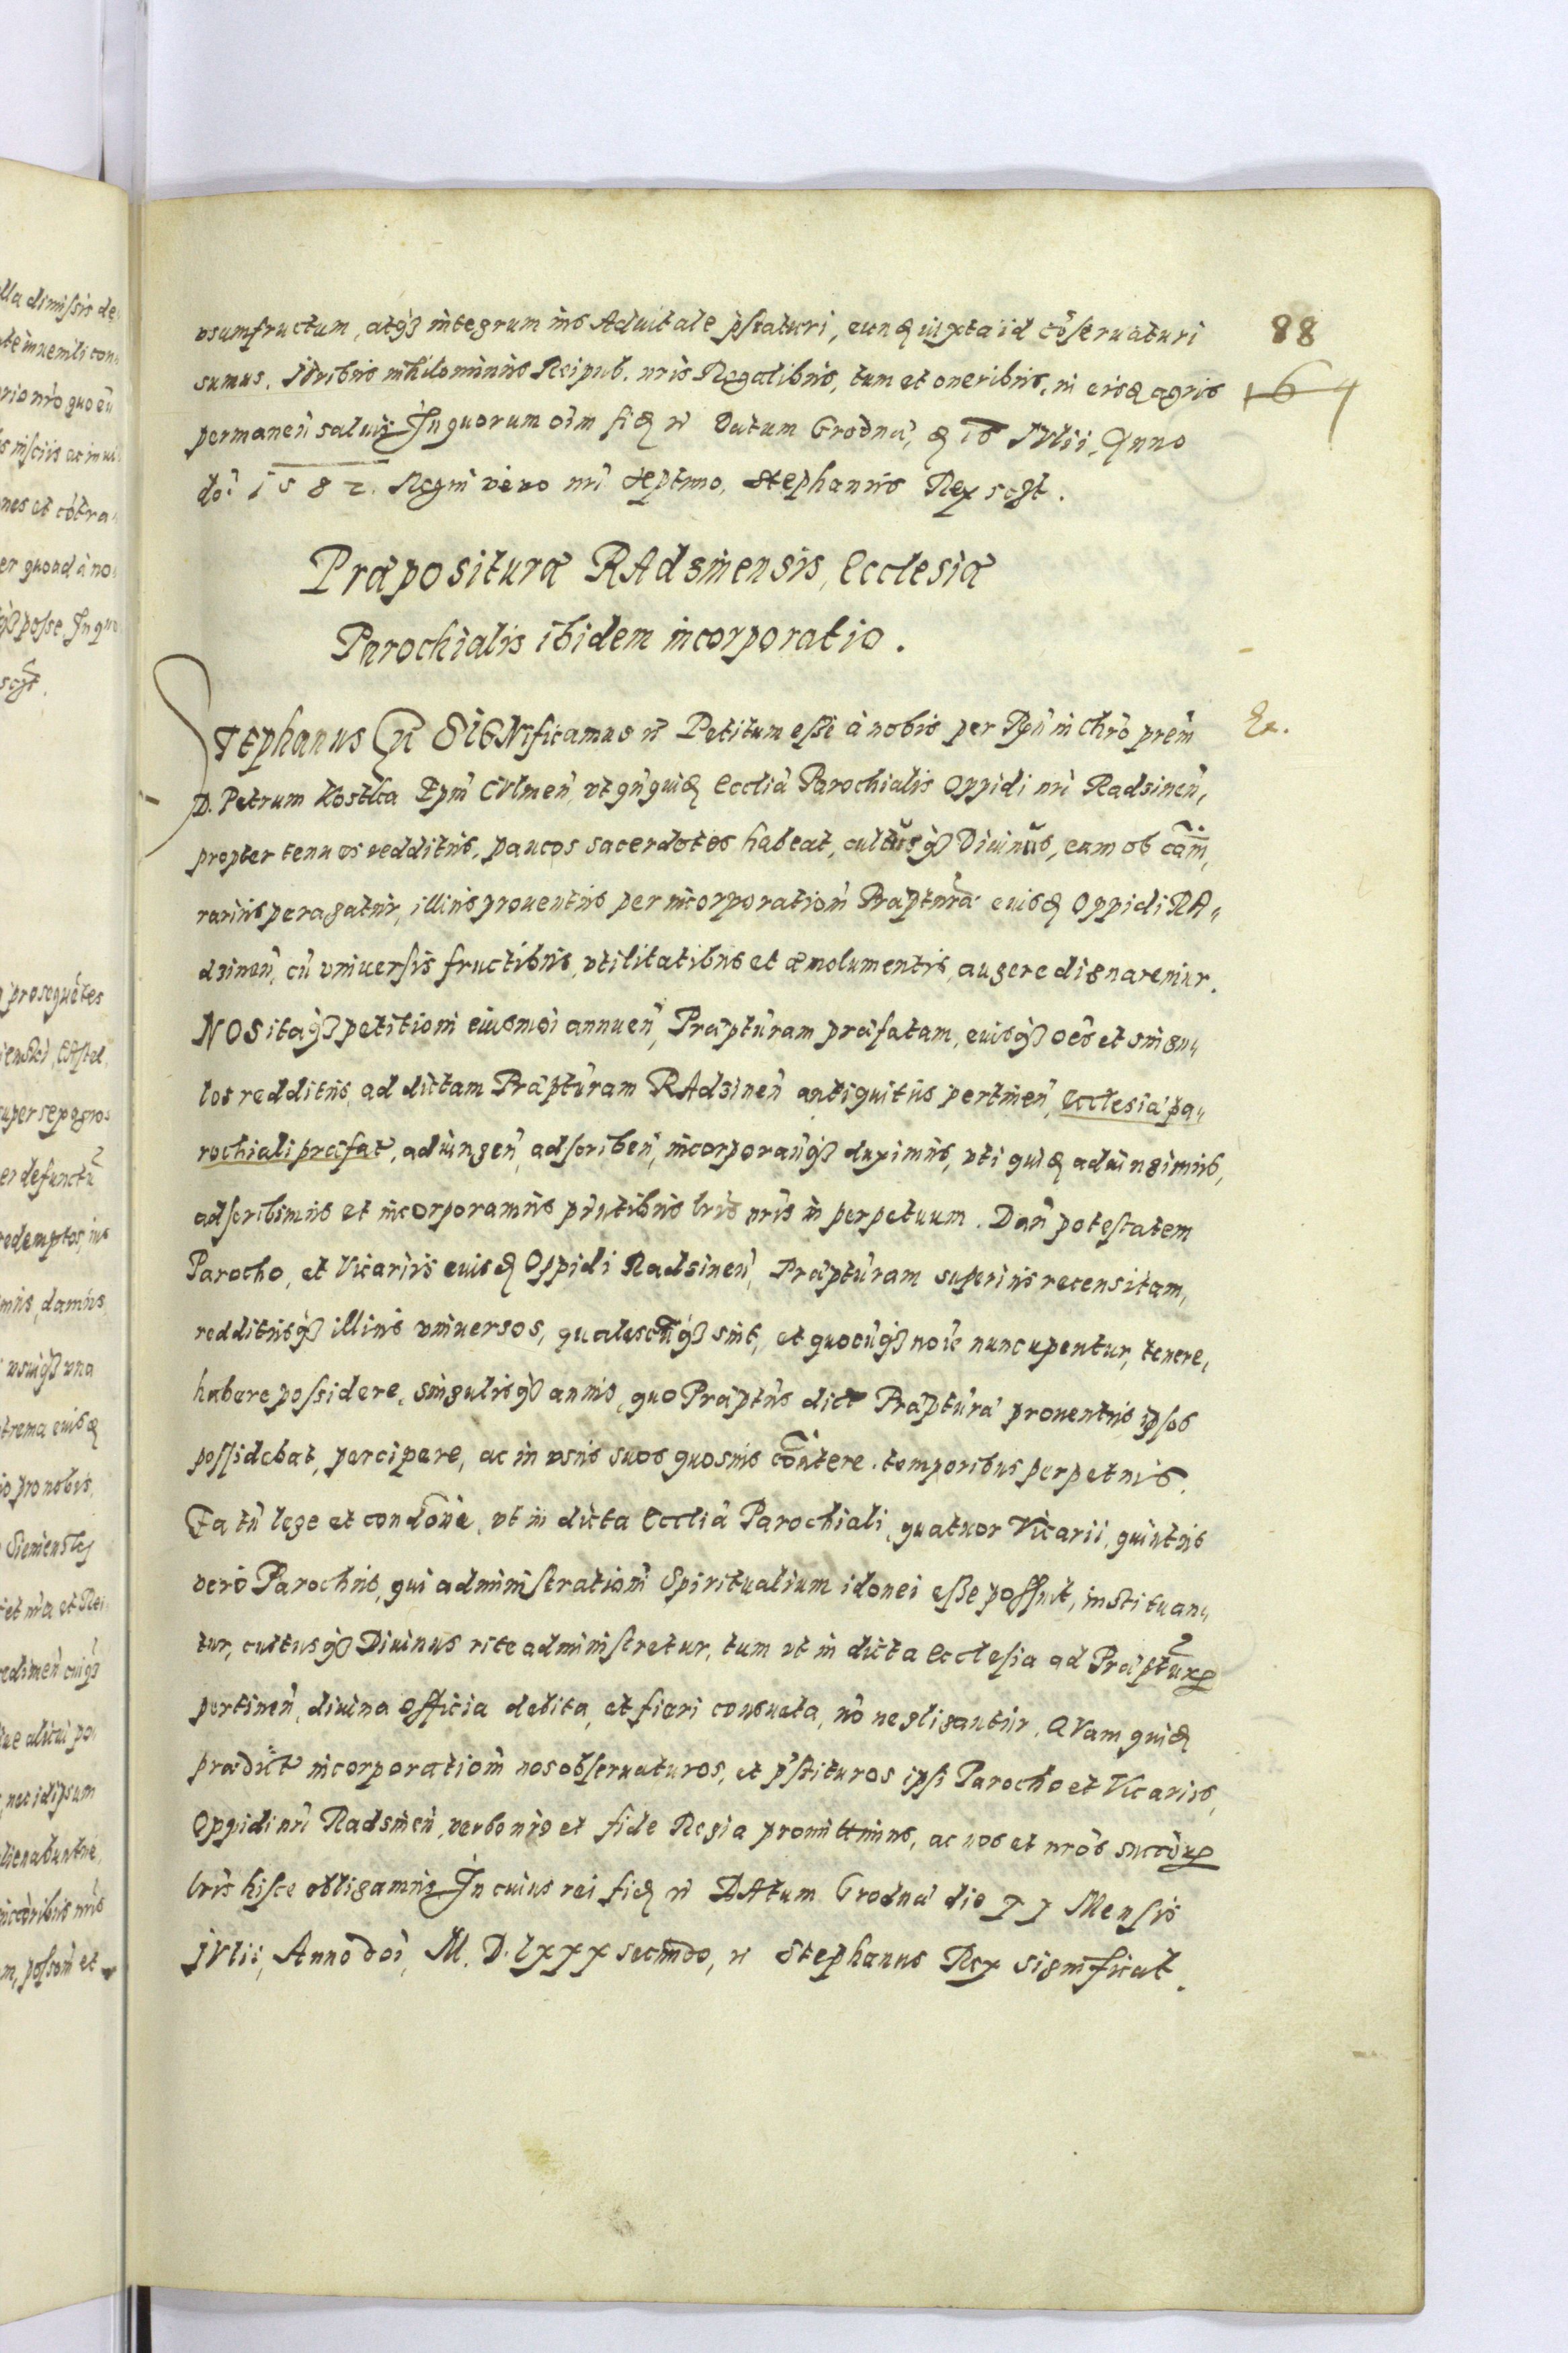 88
usumfructum, atq₃ integrum ius Aduitale p̃staturi, eundẽ iuxta id cõseruaturi
164
sumus. Iuribus nihilominus Reipub. nris Regalibus, tum et oneribus, in eisdẽ agris
permaneñ saluis. In quorum oim fidẽ rẽ Datum Grodnæ, diẽ 10 IVlii, Anno
doi 1582. Regni vero nri septimo, Stephanus Rex scpt.
Præpositura RAdsinensis, Ecclesiæ
Parochialis ibidem incorporatio.
STEphanus &c SIGNificamus &c Petitum esse à nobis per Rñ in Chro prem̃
D. Petrum Kostka Epm̃ CVlmeñ, vt qñquidẽ Ecclia Parochialis Oppidi nri Radsineñ,
propter tenuos redditus, paucos sacerdotes habeat, cultusq₃ Diuinus, eam ob cãm,
rarius peragatur, illius prouentus per incorporationẽ Præpturæ eiusdẽ Oppidi RA„
dsineñ, cũ vniuersis fructibus, vtilitatibus et æmolumentis, augere dignaremur.
NOS itaq₃ petitioni eiusmoi annueñ, Præpturam præfatam, eiusq₃ oẽs et singu„
los redditus, ad dictam Præpturam RAdsineñ antiquitus pertineñ, Ecclesiæ pa„
rochiali præfat, adiungeñ, adscribeñ, incorporañq₃ duximus, vti quidẽ adiungimus,
adscribimus et incorporamus pñtibus lris nris in perpetuum. Dañ potestatem
Parocho, et Vicariis eiusdẽ Oppidi Radsineñ, Præpturam superius recensitam,
redditusq₃ illius vniuersos, qualescũq₃ sint, et quocũq₃ noie nuncupentur, tenere,
habere possidere, singulisq₃ annis, quo Præptus dict Præpturæ prouentus ipsos
possidebat, percipere, ac in vsus suos quosuis cõuertere. temporibus perpetuis.
Ea tñ lege et condõne, vt in dicta Ecclia Parochiali, quatuor Vicarii, quintus
vero Parochus, qui administrationi Spiritualium idonei esse possint, instituan„
tur, cultusq₃ Diuinus rite administretur, tum vt in dicta Ecclesia ad Præpturã
pertineñ, diuina officia debita, et fieri consueta, nõ negligantur. QVam quidẽ
prædict incorporationẽ nos obseruaturos, et p̃stituros ipsi Parocho et Vicariis,
Oppidi nri Radsineñ, verbo nro et fide Regia promittimus, ac nos et nros succõr
lris hisce obligamus. In cuius rei fidẽ &c DAtum Grodnæ die II Mensis
IVlii, Anno doi, M. D. lxxx secundo, &c Stephanus Rex significat.